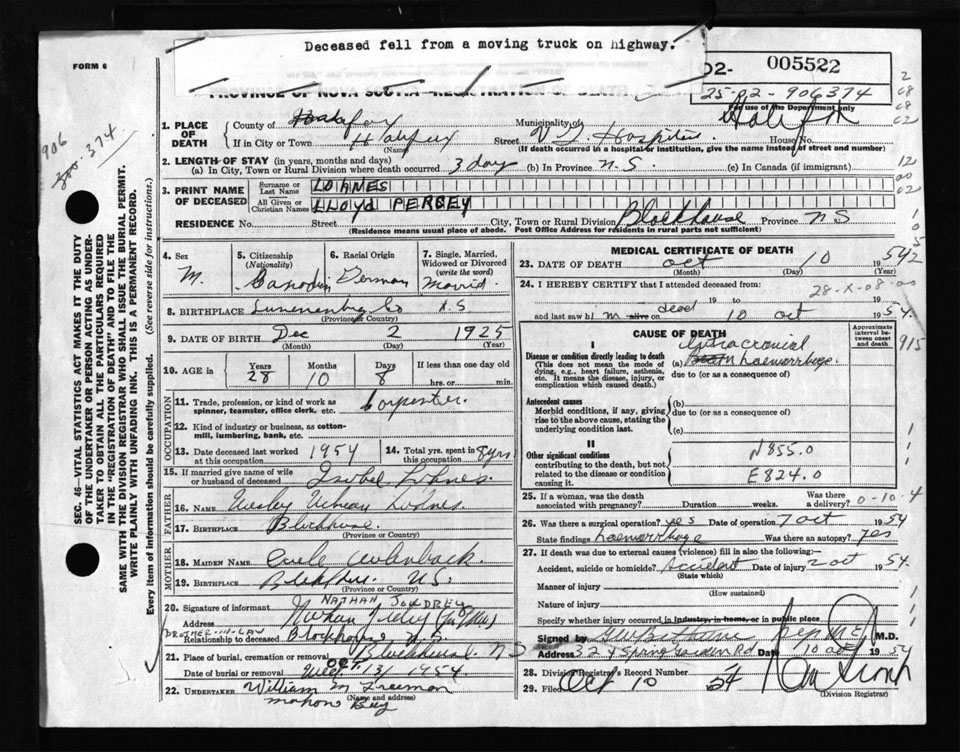 Deceased fell from a moving truck on highway.
FORM 6
02- 005522
PROVINCE OF NOVA SCOTIA—REGISTRATION OF DEATH
25-02-906374
For use of the Department only
906 374
SEC. 46—VITAL STATISTICS ACT MAKES IT THE DUTY OF THE UNDERTAKER OR PERSON ACTING AS UNDERTAKER TO OBTAIN ALL THE PARTICULARS REQUIRED IN THE "REGISTRATION OF DEATH" AND TO FILE THE SAME WITH THE DIVISION REGISTRAR WHO SHALL ISSUE THE BURIAL PERMIT.
WRITE PLAINLY WITH UNFADING INK. THIS IS A PERMANENT RECORD.
Every item of information should be carefully supplied. (See reverse side for instructions.)
1. PLACE OF DEATH
County of Halifax Municipality of Halifax
If in City or Town Halifax Street V G Hospital House No.
(Name) (If death occurred in a hospital or institution, give the name instead of street and number)
2. LENGTH OF STAY (in years, months and days)
(a) In City, Town or Rural Division where death occurred 3 day (b) In Province N.S (c) In Canada (if immigrant)
3. PRINT NAME OF DECEASED
Surname or Last Name LOHNES
All Given or Christian Names LLOYD PERCEY
RESIDENCE No. Street City, Town or Rural Division Blockhouse Province NS
(Residence means usual place of abode. Post Office Address for residents in rural parts not sufficient)
4. Sex M.
5. Citizenship (Nationality) Canadian
6. Racial Origin German
7. Single, Married, Widowed or Divorced (write the word) Marrid.
8. BIRTHPLACE Lunenburg Co N.S
(Province or Country)
9. DATE OF BIRTH Dec 2 1925
(Month) (Day) (Year)
10. AGE in Years 28 Months 10 Days 8 If less than one day hrs. or min.
OCCUPATION
11. Trade, profession, or kind of work as spinner, teamster, office clerk, etc. Carpenter.
12. Kind of industry or business, as cotton-mill, lumbering, bank, etc.
13. Date deceased last worked at this occupation 1954
14. Total yrs. spent in this occupation 8 yrs
15. If married give name of wife or husband of deceased Isabel Lohnes.
FATHER
16. NAME Wesley Lohnes.
17. BIRTHPLACE Blockhouse.
(Province or Country)
MOTHER
18. MAIDEN NAME
19. BIRTHPLACE Blockhouse. NS.
(Province or Country)
20. Signature of informant NATHAN JOUDREY
Address
BROTHER-IN-LAW
Relationship to deceased Blockhouse N.S.
21. Place of burial, cremation or removal Blockhouse. NS
Date of burial or removal Wed. OCT. 13/ 1954.
22. UNDERTAKER William M Freeman
(Name and address)
Mahon Bay
MEDICAL CERTIFICATE OF DEATH
23. DATE OF DEATH Oct 10 1954
(Month) (Day) (Year)
24. I HEREBY CERTIFY that I attended deceased from:
28-X-08-00
19 to 19
and last saw him alive on dead 10 oct 1954.
CAUSE OF DEATH
Approximate interval between onset and death
I
Disease or condition directly leading to death
(This does not mean the mode of dying, e.g., heart failure, asthenia, etc. It means the disease, injury, or complication which caused death.)
(a) Intracranial haemorrhage.
due to (or as a consequence of)
Antecedent causes
Morbid conditions, if any, giving rise to the above cause, stating the underlying condition last.
(b)
due to (or as a consequence of)
(c)
II
Other significant conditions
contributing to the death, but not related to the disease or condition causing it
N855.0
E824.0
25. If a woman, was the death associated with pregnancy? Duration weeks. Was there a delivery?
0-10-4
26. Was there surgical operation? yes Date of operation 7 oct 1954
State findings haemorrhage Was there an autopsy? Yes
27. If death was due to external causes (violence) fill in also the following:—
Accident, suicide or homicide? Accident Date of injury 2 oct 1954.
(State which)
Manner of injury
(How sustained)
Nature of injury
Specify whether injury occurred in industry, in home, or in public place
Signed by M.D.
Address 324 Spring Garden Rd Date 10 oct 1954
28. Division Registrar's Record Number
29. Filed Oct 10 54
(Division Registrar)
915